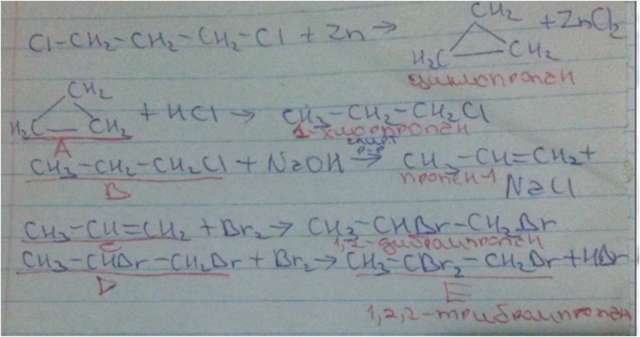 Cl-CH₂-CH₂-CH₂-Cl + Zn → CH₂ H₂C CH₂ + ZnCl₂
циклопропан
CH₂ H₂C CH₂ + HCl → CH₃-CH₂-CH₂Cl
А 1-хлорпропан
CH₃-CH₂-CH₂Cl + NaOH спирт. р-р → CH₃-CH=CH₂ +
В пропен-1 NaCl
CH₃-CH=CH₂ + Br₂ → CH₃-CHBr-CH₂Br
С 1,2-дибромпропан
CH₃-CHBr-CH₂Br + Br₂ → CH₃-CBr₂-CH₂Br + HBr
D E
1,2,2-трибромпропан